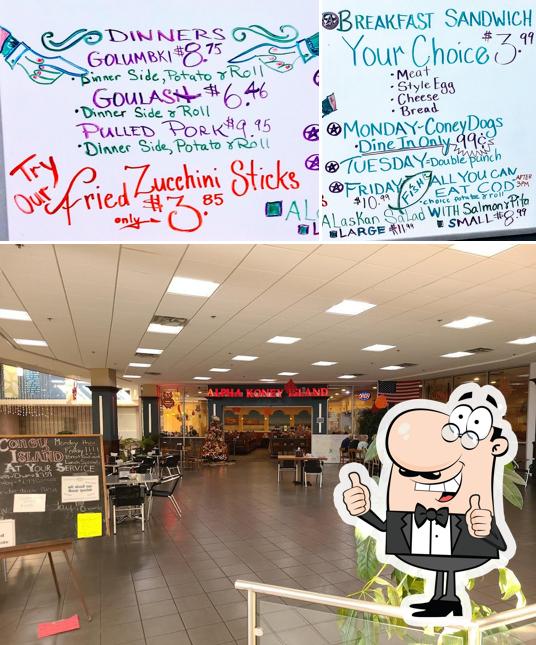 DINNERS
GOLUMBKI $8.75
Dinner Side, Potato & Roll
GOULASH $6.46
Dinner Side & Roll
PULLED PORK $9.95
Dinner Side, Potato & Roll
Try Our fried Zucchini Sticks
only $3.85
BREAKFAST SANDWICH
Your Choice $3.99
Meat
Style Egg
Cheese
Bread
MONDAY-Coney Dogs
Dine In Only 99¢
TUESDAY=Double punch
FRIDAY ALL YOU CAN
$10.99 EAT COD AFTER 3PM
choice potato & roll
ALasKan SaLad WITH Salmon & Pita
LARGE $11.99 SMALL $8.99
ALPHA KONEY ISLAND
Coney
ISLAND
AT YOUR SERVICE
Monday thru
Friday